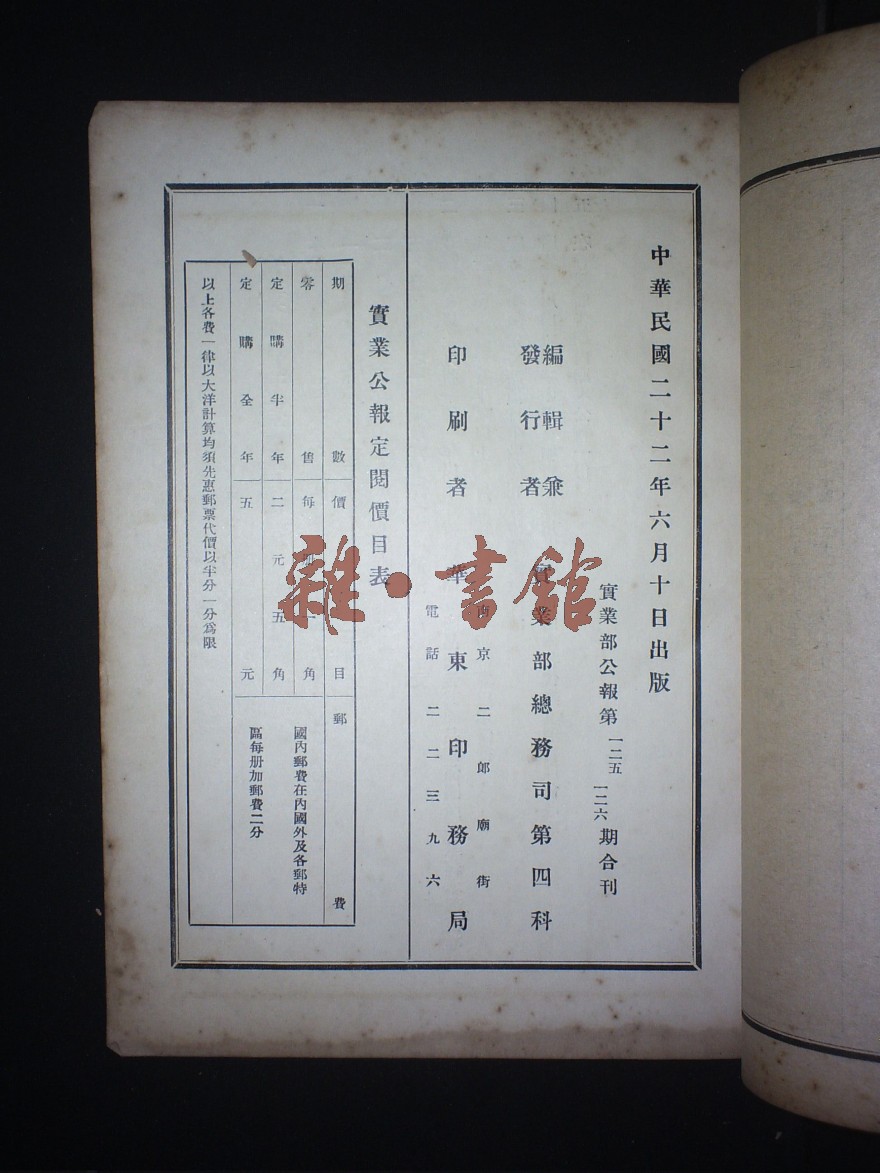 中華民國二十二年六月十日出版
實業部公報第一二五一二六期合刊
編輯兼
發行者
實業部總務司第四科
印刷者
華東印務局
南京二郎廟街
電話二二三九六
實業公報定閱價目表
期數
價目
郵費
零售
每册一角
定購半年
二元五角
定購全年
五元
國內郵費在內國外及各郵特
區每册加郵費二分
以上各費一律以大洋計算均須先惠郵票代價以半分一分爲限
雜·書館